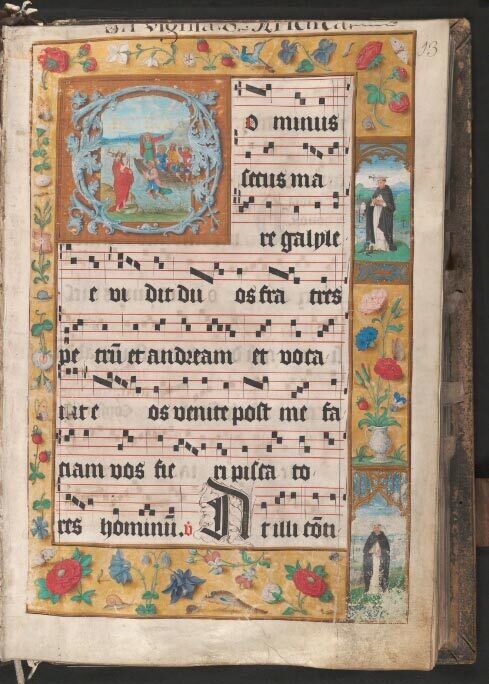 13
ominus
secus ma
re galyle
e vi dit du os fra tres
pe trū et andream et voca
uit e os venite post me fa
ciam vos fie ri pisca to
res hominū. v At illi cōti